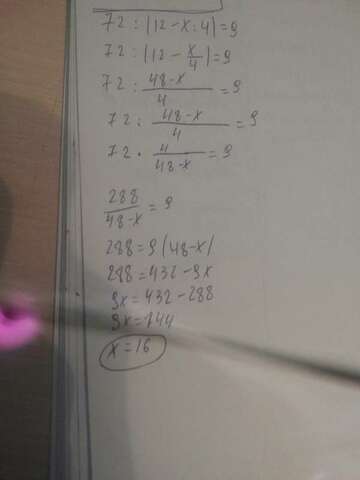 72 : (12 - x : 4) = 9
72 : (12 - x/4) = 9
72 : (48-x)/4 = 9
72 : (48-x)/4 = 9
72 · 4/(48-x) = 9
288/(48-x) = 9
288 = 9(48-x)
288 = 432 - 9x
9x = 432 - 288
9x = 144
x = 16